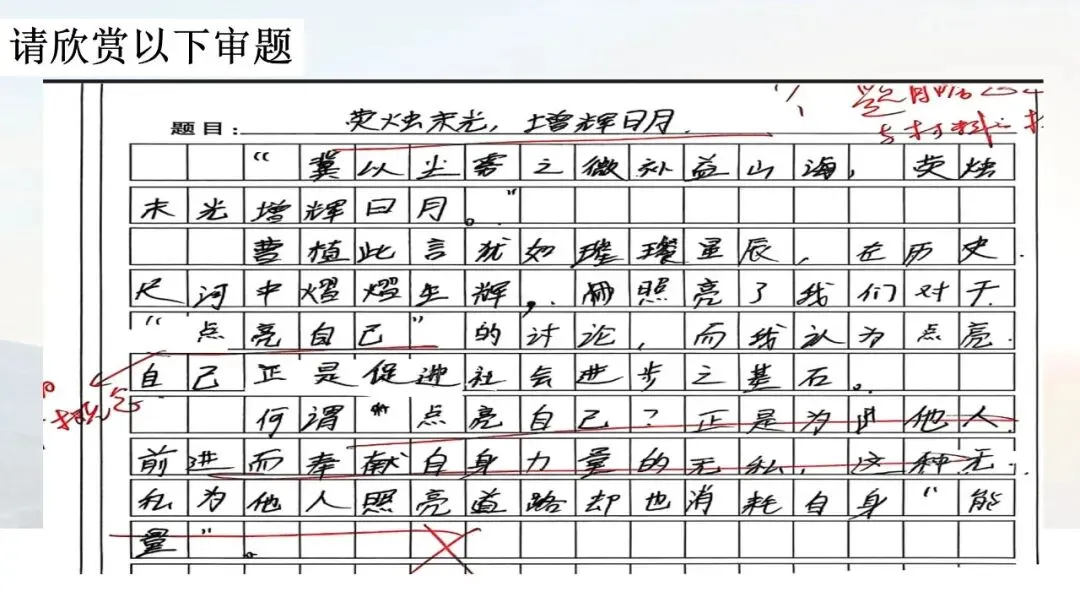 请欣赏以下审题
题目：荧烛末光，增辉日月.
“冀以尘雾之微补益山海，荧烛
末光增辉日月。”
曹植此言犹如璀璨星辰，在历史
尺河中熠熠生辉，照亮了我们对于
“点亮自己”的讨论，而我认为点亮
自己正是促进社会进步之基石。
何谓“点亮自己？正是为他人
前进而奉献自身力量的无私，这种无
私为他人照亮道路却也消耗自身“能
量”。
题目
与材料